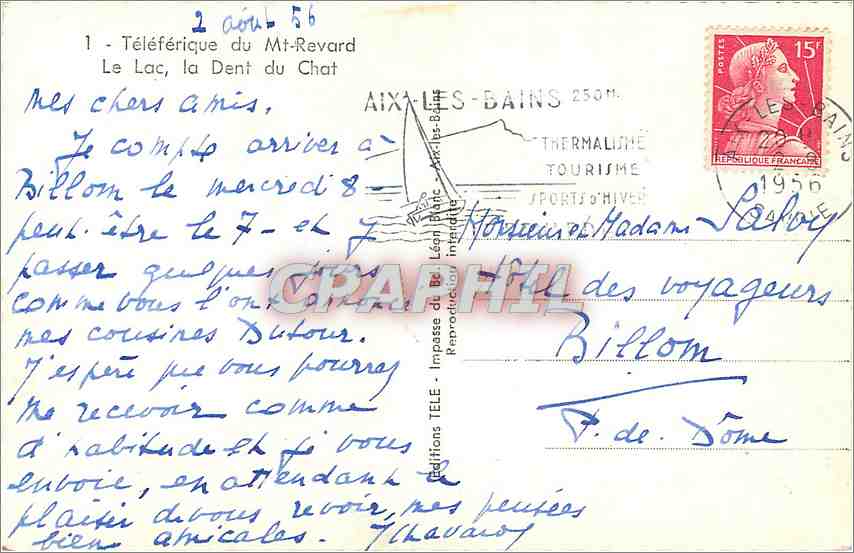 2 août 56
1 - Téléférique du Mt-Revard
Le Lac, la Dent du Chat
Mes chers amis,
Je compte arriver à
Billom le mercredi 8 -
peut-être le 7 - et y
passer quelques jours
comme vous l'ont annoncé
mes cousines Dutour.
J'espère que vous pourrez
me recevoir comme
d'habitude et je vous
envoie, en attendant le
plaisir de vous revoir, mes pensées
bien amicales.
AIX-LES-BAINS 250 M.
THERMALISME
TOURISME
SPORTS D'HIVER
Editions TELE - Impasse du Bd. Léon Blanc - Aix-les-Bains
Reproduction interdite
POSTES 15F
REPUBLIQUE FRANCAISE
LES-BAINS
1956
Monsieur et Madame Salvy
Hôtel des voyageurs
Billom
P. de. Dôme
CPARPHIL